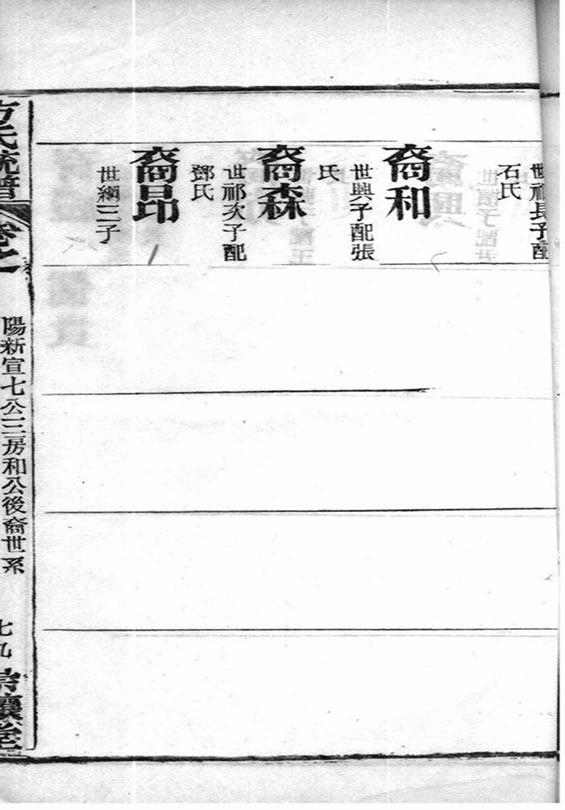 世祁長子配
石氏
裔和
世興子配張
氏
裔森
世祁次子配
鄧氏
裔昂
世綱三子
方氏統譜
卷之一
陽新宣七公三房和公後裔世系
七九